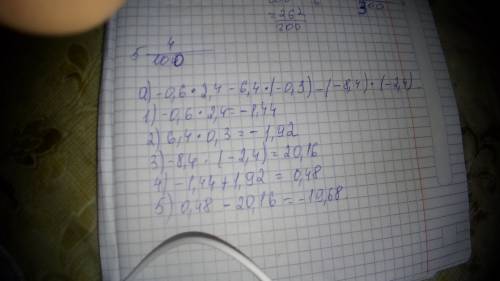 = 262
200
300
5 4
1000
а) -0,6 · 2,4 - 6,4 · (-0,3) - (-8,4) · (-2,4)
1) -0,6 · 2,4 = -1,44
2) 6,4 · 0,3 = -1,92
3) -8,4 · (-2,4) = 20,16
4) -1,44 + 1,92 = 0,48
5) 0,48 - 20,16 = -19,68